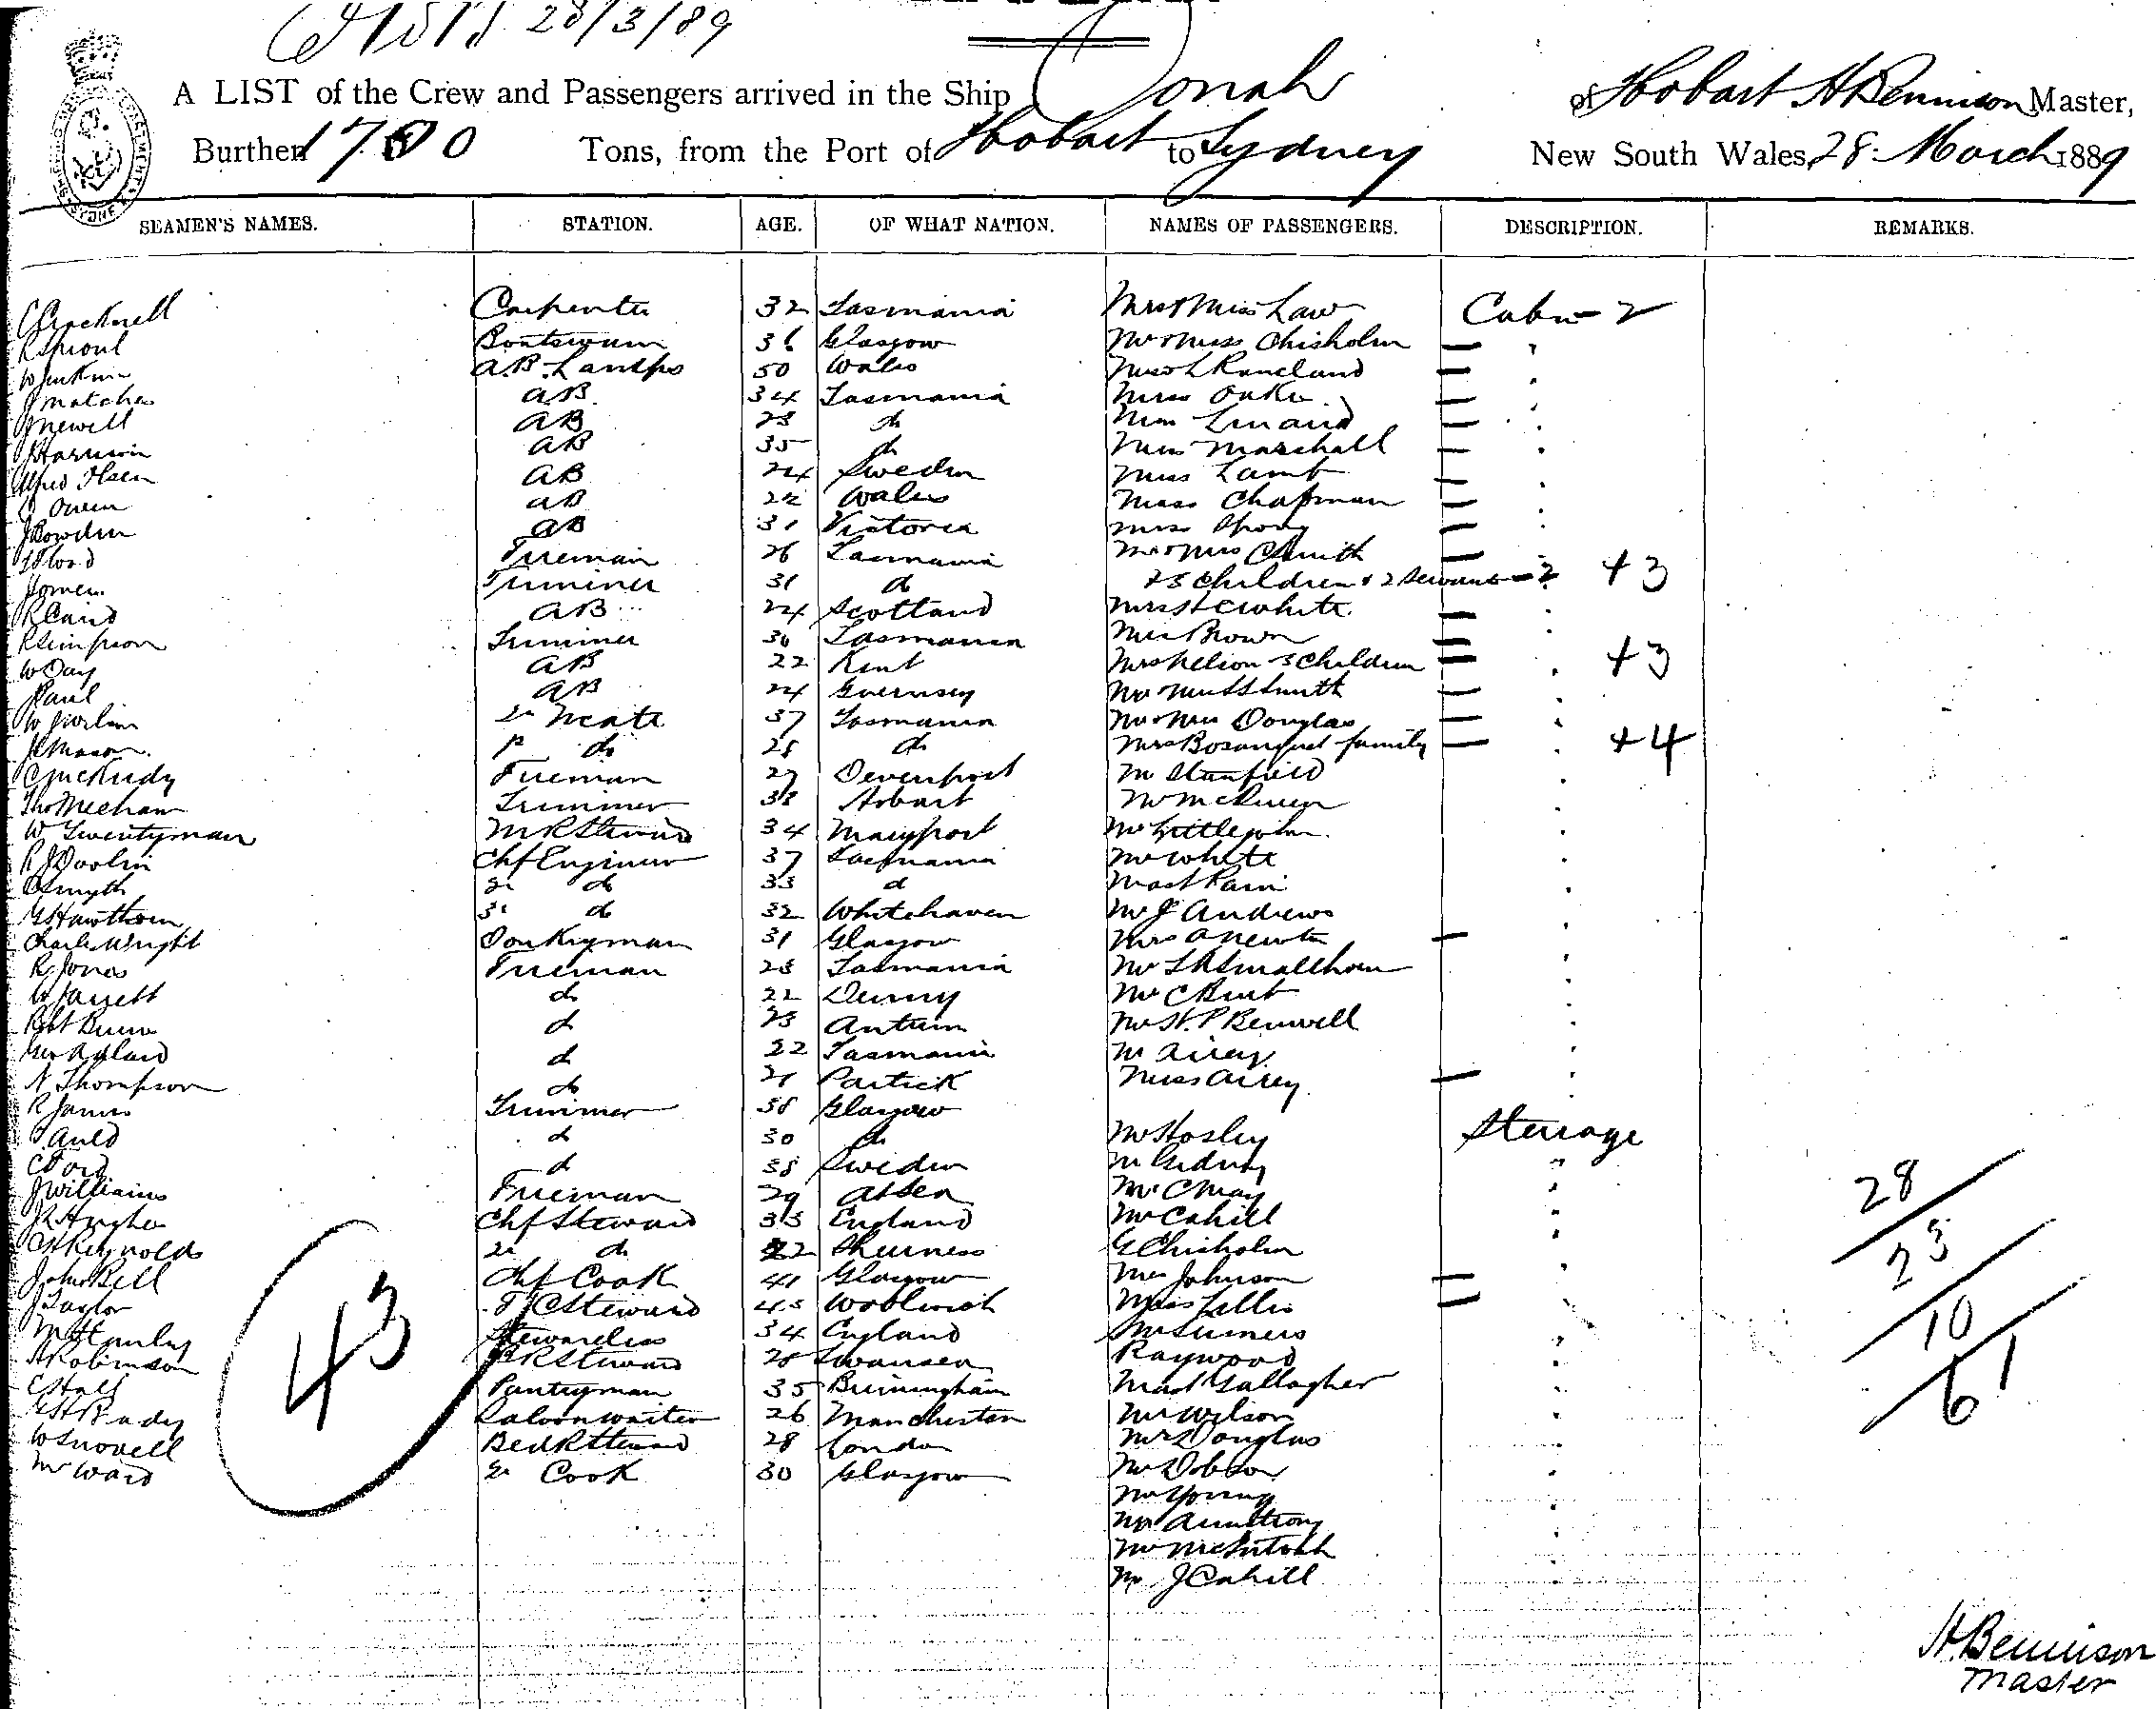 28/3/89
A LIST of the Crew and Passengers arrived in the Ship Oonah of Hobart H Bennison Master,
Burthen Tons, from the Port of Hobart to Sydney New South Wales, 28 March 1889
SEAMEN'S NAMES. STATION. AGE. OF WHAT NATION. NAMES OF PASSENGERS. DESCRIPTION. REMARKS.
C Cracknell Carpenter 32 Tasmania Mrs & Miss Law Cabin 2
R Sproul Boatswain 36 Glasgow Mr & Miss Chisholm — "
W Jenkins A.B. Lamps 50 Wales — "
J Matches AB 34 Tasmania Miss — "
J Newell AB 23 do — "
J AB 35 do Miss Marshall — "
Alfred Olsen AB 24 Sweden Miss Lamb — "
Owen AB 22 Wales Miss Chapman — "
J Bowden AB 31 Victoria Miss — "
Fireman 26 Tasmania Mr & Mrs C Smith —
Trimmer 31 do & 3 Children & 2 Servants — 2 +3
R Caird AB 24 Scotland Mrs White —
R Simpson Trimmer 30 Tasmania Mrs Brown —
W Day AB 22 Kent Mrs Nelson 3 Children — " +3
J Paul AB 24 Guernsey Smith — "
W 2nd Mate 37 Tasmania Mr & Mrs Douglas — "
J E Mason 1st do 28 do Mrs Bosanquet family — " +4
C McKurdy Fireman 27 Devenport Mr Stanfield "
Tho Meehan Trimmer 38 Hobart Mr "
W Twentyman M R Steward 34 Maryport Mr Littlejohn "
R J Doolin Chf Engineer 37 Tasmania Mr White "
Smyth 2nd do 33 do Mast "
G Hawthorn 3rd do 32 Whitehaven Mr J Andrews "
Charles Wright Donkeyman 31 Glasgow Mrs A Newton — "
R Jones Fireman 28 Tasmania Mr Smallhorn "
W Jarrett do 22 Mr C Burt "
Robt do 23 Antrim Mr H. P Benwell "
Geo Adlard do 22 Tasmania Mr Airey "
N Thompson do 21 Partick Miss Airey — "
R James Trimmer 38 Glasgow
J Auld do 30 do Mr Hosley Steerage
C Ford do 38 Sweden Mr Gidney "
J Williams Fireman 29 At Sea Mr C May "
J R Hughes Chf Steward 33 England Mr Cahill "
Reynolds 2nd do 22 Sheerness G Chisholm "
John Bell Chf Cook 41 Glasgow Mrs Johnson — "
J Taylor F C Steward 43 Woolwich Miss Lillis —
M Stewardess 34 England Mr Sumers "
H Robinson Steward 28 Swansea Raywood "
C Hall Pantryman 35 Birmingham Mast Gallagher "
G H Brady Saloon waiter 26 Manchester Mr Wilson "
W Snovell Bed R Steward 28 London Mr Douglas "
M Ward 2nd Cook 30 Glasgow Mr Dobson "
Mr Young "
Mr Armstrong "
Mr McIntosh "
Mr J Cahill "
43
28
23
10
61
H. Bennison
Master